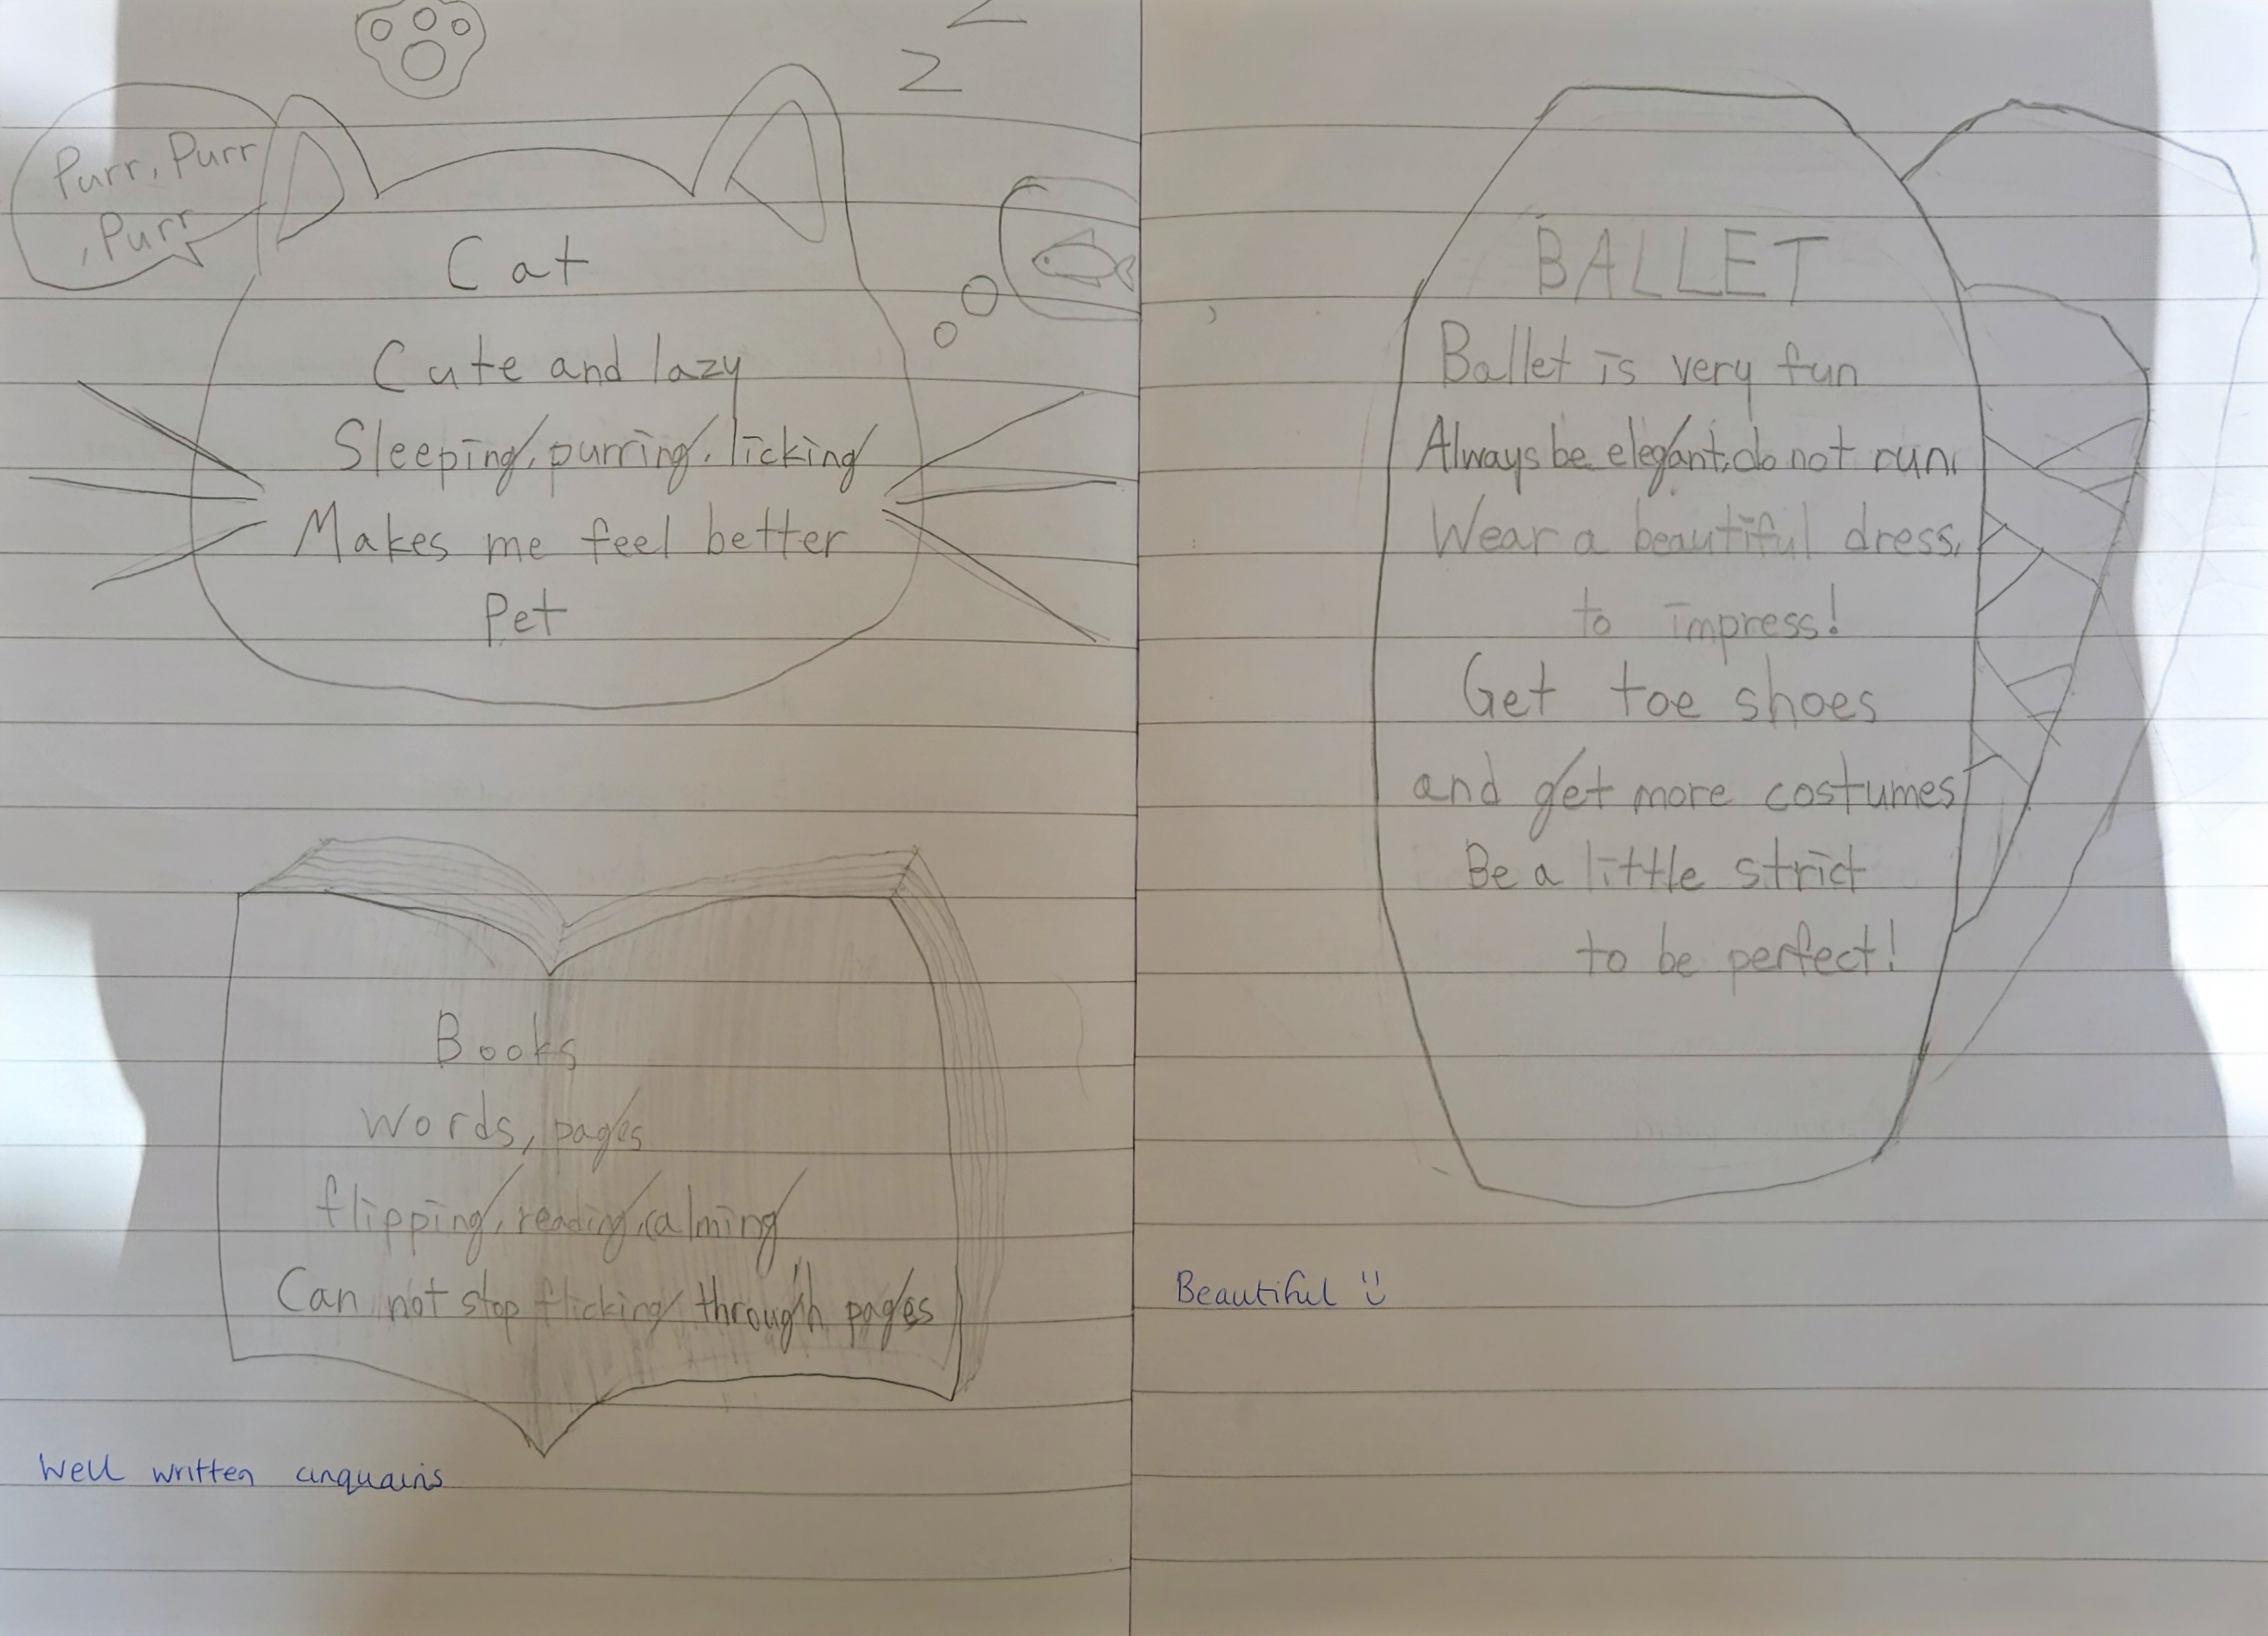 Purr, Purr
, Purr
Z
Z
Cat
Cute and lazy
Sleeping, purring, licking
Makes me feel better
Pet
Books
words, pages
flipping, reading, calming
Can not stop flicking through pages
Well written cinquains
BALLET
Ballet is very fun
Always be elegant, do not run.
Wear a beautiful dress,
to impress!
Get toe shoes
and get more costumes
Be a little strict
to be perfect!
Beautiful